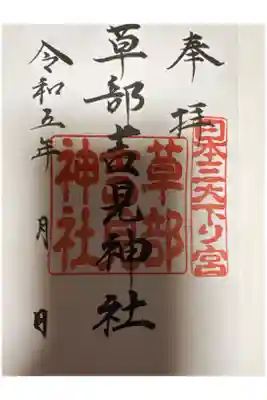 奉拝
日本三大下り宮
草部吉見神社
草部吉見神社
令和五年 月 日